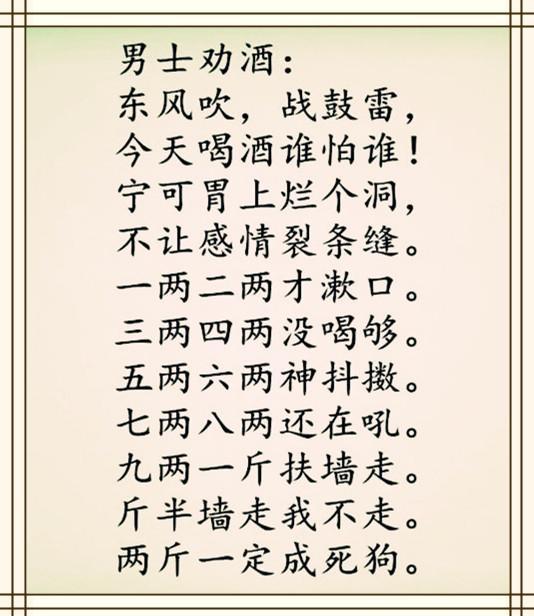 男士劝酒：
东风吹，战鼓雷，
今天喝酒谁怕谁！
宁可胃上烂个洞，
不让感情裂条缝。
一两二两才漱口。
三两四两没喝够。
五两六两神抖擞。
七两八两还在吼。
九两一斤扶墙走。
斤半墙走我不走。
两斤一定成死狗。